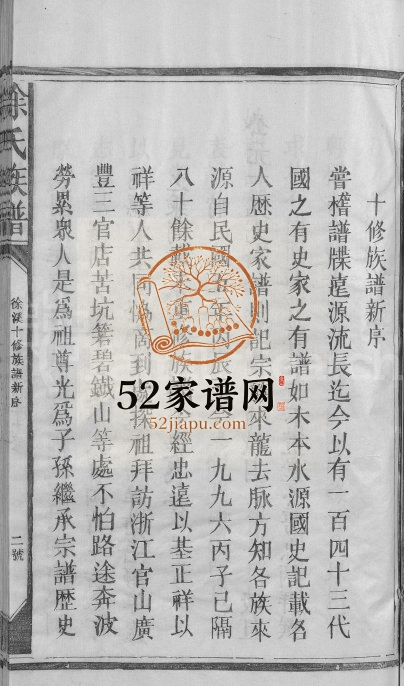 十修族譜新序
嘗稽譜牒遠源流長迄今以有一百四十三代
國之有史家之有譜如木本水源國史記載各
人歷史家譜則記宗來龍去脉方知各族來
源自民國一九九六丙子已隔
八十餘載重修族經忠遠以基正祥以
祥等人共同到探祖拜訪浙江官山廣
豐三官店苦坑箬碧鐵山等處不怕路途奔波
勞累衆人是爲祖尊光爲子孫繼承宗譜歷史
徐氏族譜
徐溪十修族譜新序
二號
52家谱网
52jiapu.com